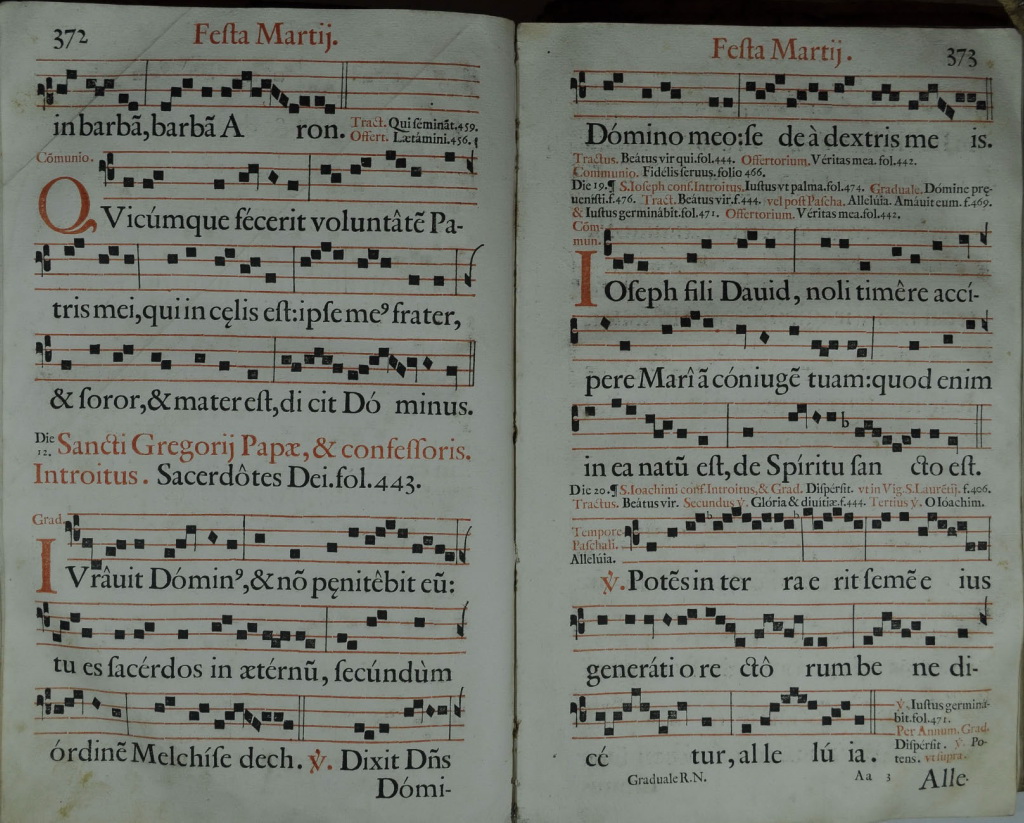 372 Festa Martij.
in barbã, barbã A ron. Tract. Qui sémināt. 459.
Offert. Lætámini. 456.
Cómunio.
QVicúmque fécerit voluntâtẽ Pa-
tris mei, qui in cęlis est: ipse me⁹ frater,
& soror, & mater est, di cit Dó minus.
Die 12. Sancti Gregorij Papæ, & confessoris.
Introitus. Sacerdôtes Dei. fol. 443.
Grad.
IVrâuit Dómin⁹, & nõ pęnitêbit eũ:
tu es sacérdos in ætérnũ, secúndùm
órdinẽ Melchíse dech. ℣. Dixit Dñs
Dómi-
Festa Martij. 373
Dómino meo: se de à dextris me is.
Tractus. Beátus vir qui. fol. 444. Offertorium. Véritas mea. fol. 442.
Communio. Fidélis seruus. folio 466.
Die 19. ¶ S. Ioseph conf. Introitus. Iustus vt palma. fol. 474. Graduale. Dómine pręuenísti. f. 476. Tract. Beátus vir. f. 444. vel post Pascha. Allelúia. Amáuit eum. f. 469.
& Iustus germinâbit. fol. 471. Offertorium. Véritas mea. fol. 442.
Cómmun.
IOseph fili Dauid, noli timêre accí-
pere Marî ã cóniugẽ tuam: quod enim
in ea natũ est, de Spíritu san cto est.
Die 20. ¶ S. Ioachimi conf. Introitus, & Grad. Dispérsit. vt in Vig. S. Laurẽtij. f. 406.
Tractus. Beátus vir. Secundus ℣. Glória & diuitiæ. f. 444. Tertius ℣. O Ioachim.
Tempore Paschali.
Allelúia.
℣. Potẽs in ter ra e rit semẽ e ius
generáti o re ctô rum be ne di-
cé tur, al le lú ia.
℣. Iustus germinâbit. fol. 471.
Per Annum. Grad.
Dispérsit. ℣. Potens. vt supra.
Graduale R.N. Aa 3 Alle-